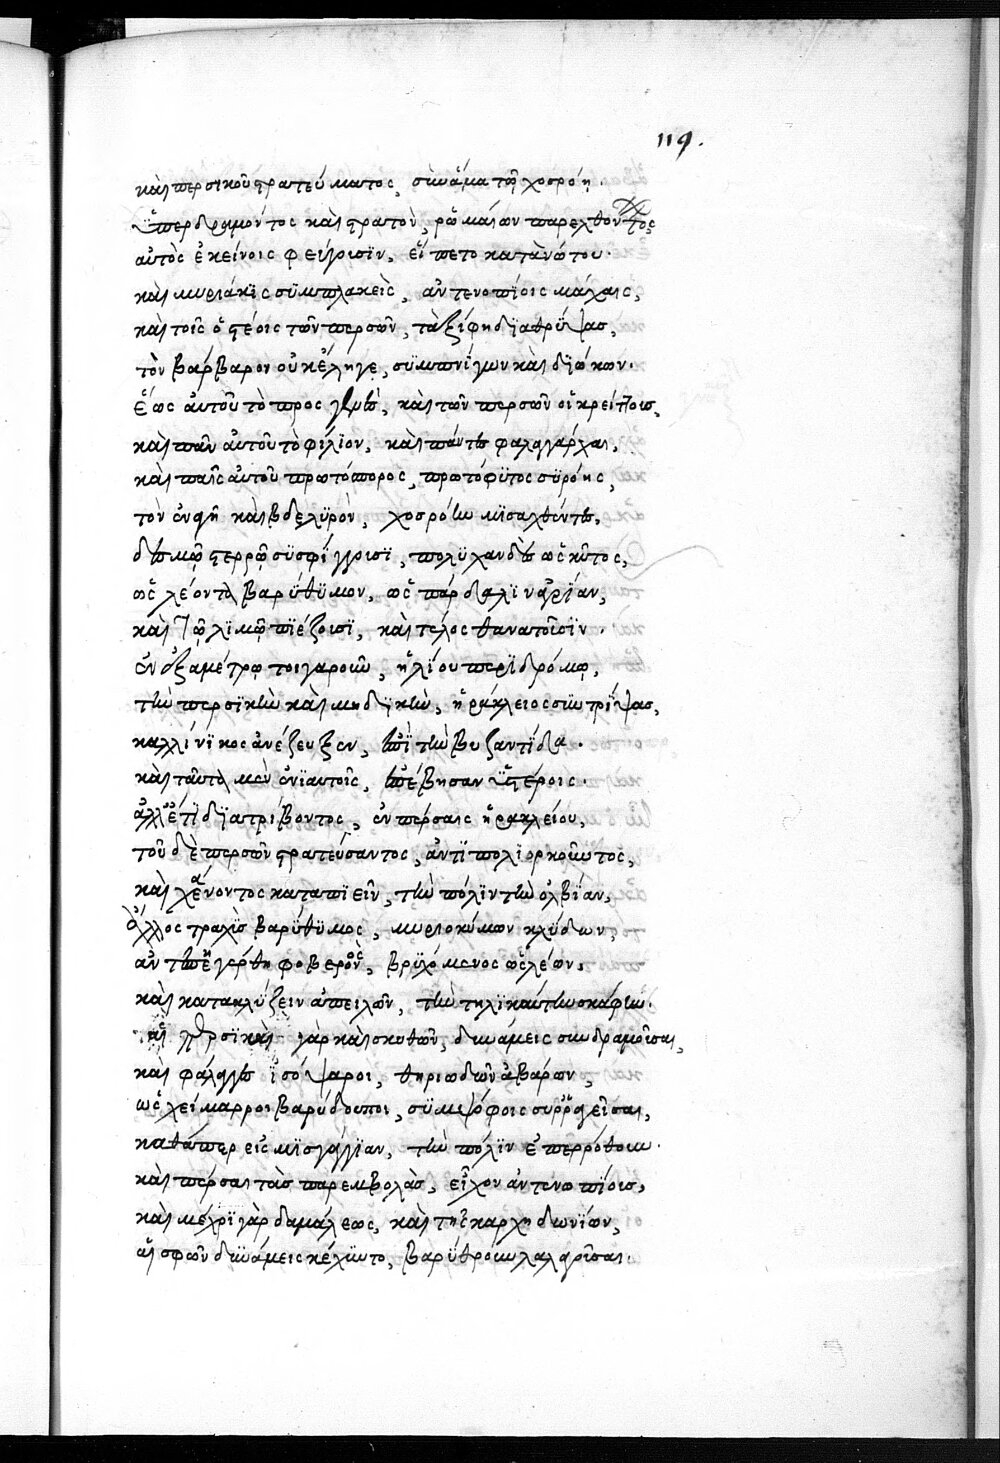 119.
καὶ περσικοῦ στρατεύματος, σὺν ἅμα τῶ χοσρόη.
ὑπερδραμόντος καὶ στρατὸν, ῥωμαίων παρελθόντος
αὐτὸς ἐκείνοις φεύγουσϊν, εἵπετο κατὰ νώτου.
καὶ μυριάκϊς συμπλακεὶς, ἀντενοπίοις μάχαις,
καὶ τοῖς ὀστέοις τῶν περσῶν, τὰ ξίφη δϊαθρύψας,
τὸν βάρβαρον οὐκ ἔληγε, συμπνίγων καὶ δϊώκων.
ἕως αὐτοῦ τὸ πρὸς, καὶ τῶν περσῶν οἱ κρείττους,
καὶ πᾶν αὐτοῦ τὸ φίλϊον, καὶ πάντες φαλαγγάρχαι,
καὶ παῖς αὐτοῦ πρωτόπορος, πρωτόφϋτος σϋρόης,
τὸν ἐναγῆ καὶ βδελϋρὸν, χοσρόην μϊσαχθέντες,
δεσμῶ στερρῶ συσφίγγουσϊ, πολϋχανδὲς ὡς κῆτος,
ὡς λέοντα βαρύθϋμον, ὡς πάρδαλϊν ἀγρίαν,
καὶ τῶ λϊμῶ πϊέζουσϊ, καὶ τέλος θανατοῦσϊν.
ἐν ἑξαμέτρω τοιγαροῦν, ἡλίου περϊδρόμω,
τὴν περσϊκὴν καὶ μηδϊκὴν, ἡράκλειος συντρίψας,
καλλίνϊκος ἀνέζευξεν, ἐπϊ τὴν βυζαντίδα.
καὶ ταῦτα μὲν ἐνϊαυτοῖς, ἐπέβησαν ὑστέροις.
ἀλλ' ἔτϊ δϊατρίβοντος, ἐν πέρσαις ἡρακλείου,
τοῦ δὲ περσῶν στρατεύσαντος, ἀντϊπολϊορκοῦντος,
καὶ χαίνοντος καταπϊεῖν, τὴν πόλϊν τὴν ὀλβίαν,
ἄλλος τραχὺς βαρύθϋμος, μυρϊοκύμων κλύδων,
ἀντεπηγέρθη φοβερὸς, βρϋχόμενος ὡς λέων,
καὶ κατακλύζειν ἀπειλῶν, τὴν τηλϊκαύτην σκάφην.
γὰρ καὶ σκυθῶν, δυνάμεις συνδραμοῦσαι,
καὶ φάλαγγες ϊσόψαροι, θηριωδῶν ἀβάρων,
ὡς χείμαρροι βαρύδουποι, συμψόφοις συρραγεῖσαι,
καθάπερ εἰς μϊσγάγγϊαν, τὴν πόλϊν ἐπερρόθουν.
καὶ πέρσαι τὰς παρεμβολὰς, εἶχον ἀντενωπίους,
καὶ μέχρϊ γὰρ δαμάλεως, καὶ τῆς καρχηδωνίων,
αἱ σφῶν δϋνάμεις κέχϋντο, βαρϋθρόϊν λαλαγοῦσαι.